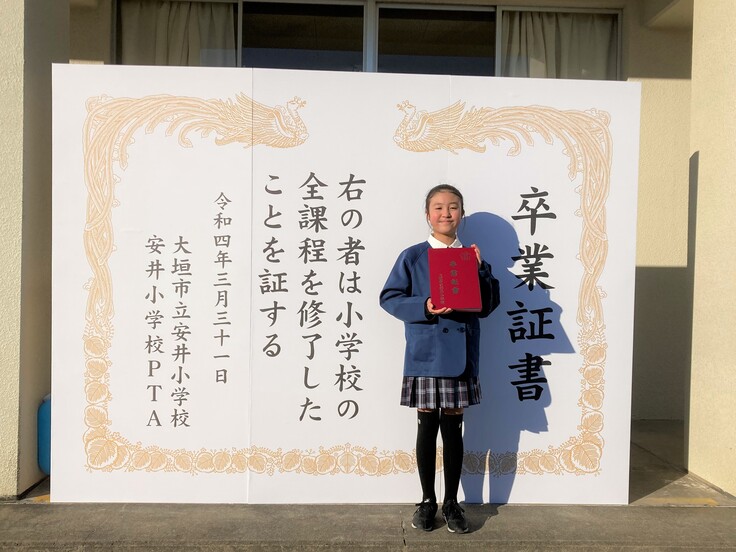 卒業証書
右の者は小学校の
全課程を修了した
ことを証する
令和四年三月三十一日
大垣市立安井小学校
安井小学校PTA
卒業証書